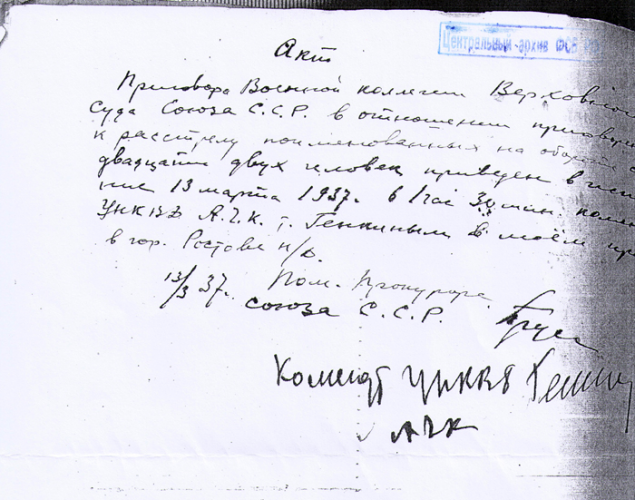 Центральный архив ФСБ
Акт
Приговора Военной коллегии Верховного
Суда Союза С.С.Р. в отношении приговор
к расстрелу поименованных на обороте
двадцати двух человек приведен в исп
ние 13 марта 1937г. в 1 час 30 мин. комен
УНКВД А.Ч.К. т. Генкиным в моём пр
в гор. Ростове н/Д.
13/3 37г. Пом. Прокурора
Союза С.С.Р.
Комендт УНКВД
АЧК